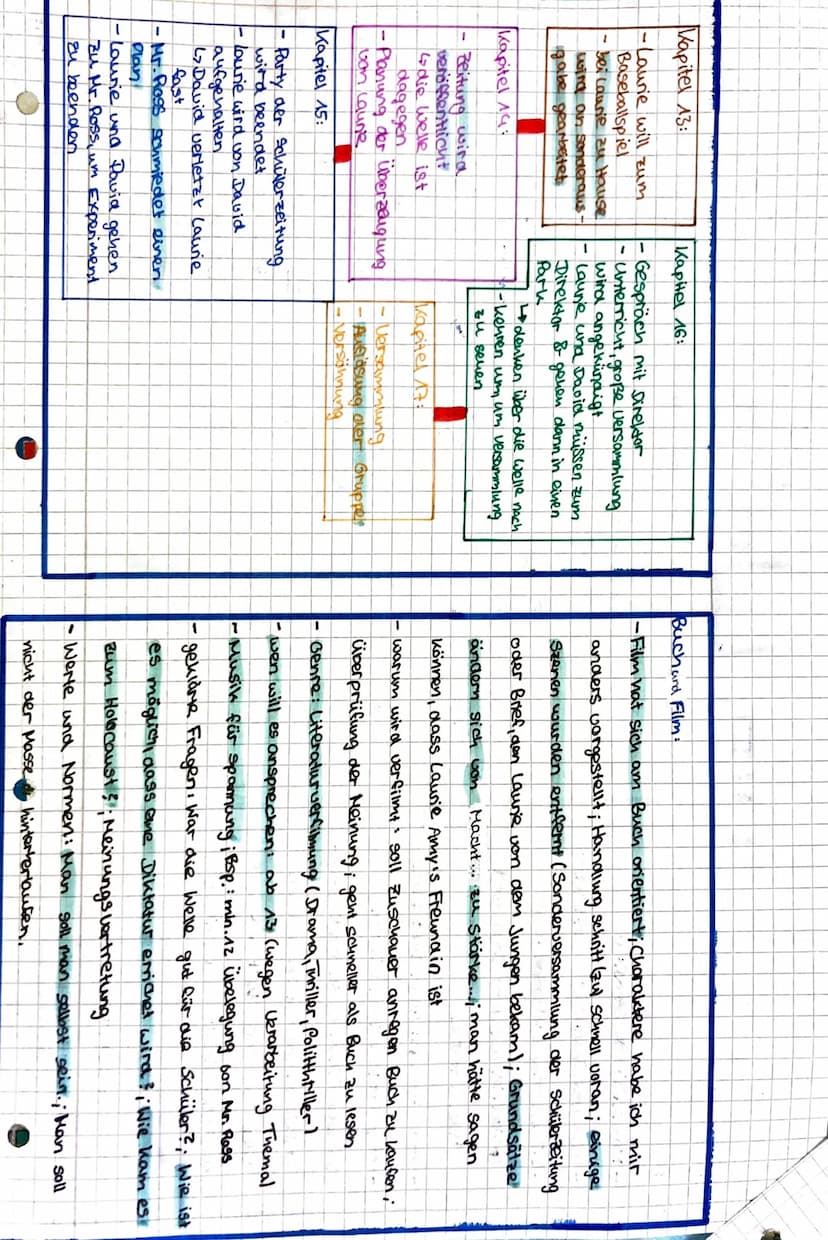 Kapitel 13:
- Laurie will zum
Baseballspiel
- bei Laurie zu Hause
wird an Sonderaus-
gabe gearbeitet
Kapitel 14:
- Zeitung wird
veröffentlicht
↳ die Welle ist
dagegen
- Planung der Überzeugung
von Laurie
Kapitel 15:
- Party der Schülerzeitung
wird beendet
- Laurie wird von David
aufgehalten
↳ David verletzt Laurie
fast
- Mr. Ross schmiedet einen
Plan
- Laurie und David gehen
zu Mr. Ross, um Experiment
zu beenden
Kapitel 16:
- Gespräch mit Direktor
- Unterricht, große Versammlung
wird angekündigt
- Laurie und David müssen zum
Direktor & gehen dann in einen
Park
↳ denken über die Welle nach
- kehren um, um Versammlung
zu sehen
Kapitel 17:
- Versammlung
- Auflösung der Gruppe
- Versöhnung
Buch und Film:
- Film hat sich am Buch orientiert; Charaktere habe ich mir
anders vorgestellt; Handlung schritt (zu) schnell voran; einige
Szenen wurden entfernt (Sonderversammlung der Schülerzeitung
oder Brief, den Laurie von dem Jungen bekam); Grundsätze
ändern sich von Macht... zu Stärke...; man hätte sagen
können, dass Laurie Amy's Freundin ist
- warum wird verfilmt: soll Zuschauer anregen Buch zu kaufen;
Überprüfung der Meinung; geht schneller als Buch zu lesen
- Genre: Literaturverfilmung (Drama, Thriller, Politthriller)
- wen will es ansprechen: ab 13 (wegen Verarbeitung Thema)
- Musik für Spannung; Bsp.: min. 12 Überlegung von Mr. Ross
- geklärte Fragen: War die Welle gut für die Schüler?; Wie ist
es möglich, dass eine Diktatur errichet wird?; Wie kam es
zum Holocaust?; Meinungsvertretung
- Werte und Normen: Man soll man selbst sein.; Man soll
nicht der Masse hinterherlaufen.